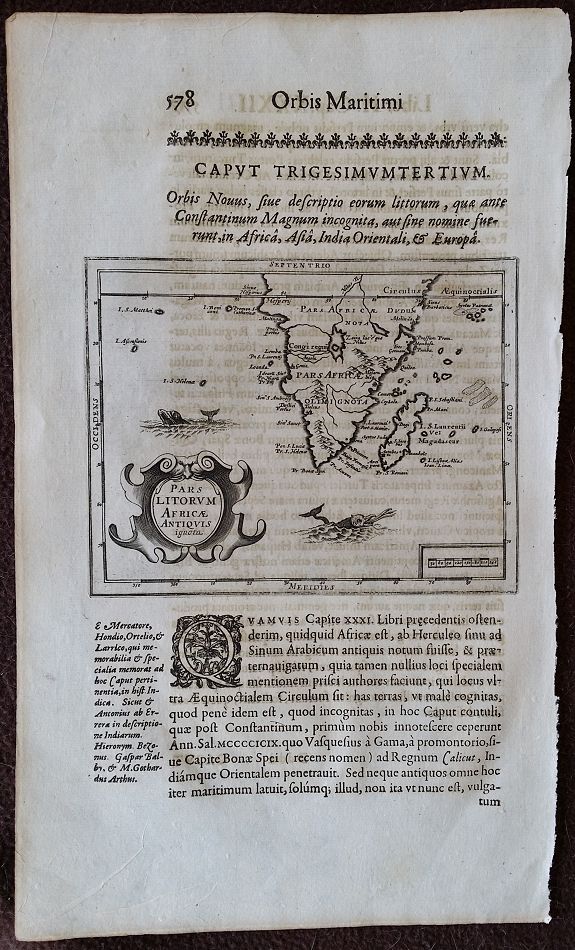 578 Orbis Maritimi
CAPVT TRIGESIMVMTERTIVM.
Orbis Nouus, siue descriptio eorum littorum, quæ ante
Constantinum Magnum incognita, aut sine nomine fue-
runt, in Africâ, Asiâ, India Orientali, & Europâ.
SEPTENTRIO
Circulus Æquinoctialis
I. S. Matthæi
PARS AFRICÆ
NOTA
I. Ascensionis
Congi regnũ
Loanda
I. S. Helena
PARS AFRICÆ
OLIM IGNOTA
I. S. Laurentii
Vel
Madagascar
OCCIDENS
ORIENS
PARS
LITORVM
AFRICÆ
ANTIQVIS
ignota
MERIDIES
E Mercatore,
Hondio, Ortelio, &
Larrico, qui me-
morabilia & spe-
cialia memorat ad
hoc Caput perti-
nentia, in hist In-
dica. Sicut &
Antonius ab Er-
rera in descriptio-
ne Indiarum.
Hieronym. Bezo-
nus. Gaspar Bal-
by, & M. Gothar-
dus Arthus.
QVAMVIS Capite XXXI. Libri pręcedentis osten-
derim, quidquid Africæ est, ab Herculeo sinu ad
Sinum Arabicum antiquis notum fuisse, & præ-
ternauigatum, quia tamen nullius loci specialem
mentionem prisci authores faciunt, qui locus vl-
tra Æquinoctialem Circulum sit: has terras, vt malè cognitas,
quod penè idem est, quod incognitas, in hoc Caput contuli,
quæ post Constantinum, primùm nobis innotescere ceperunt
Ann. Sal. MCCCCICIX. quo Vasquesius à Gama, à promontorio, si-
ue Capite Bonæ Spei ( recens nomen ) ad Regnum Calicut, In-
diámque Orientalem penetrauit. Sed neque antiquos omne hoc
iter maritimum latuit, solúmq; illud, non ita vt nunc est, vulga-
tum